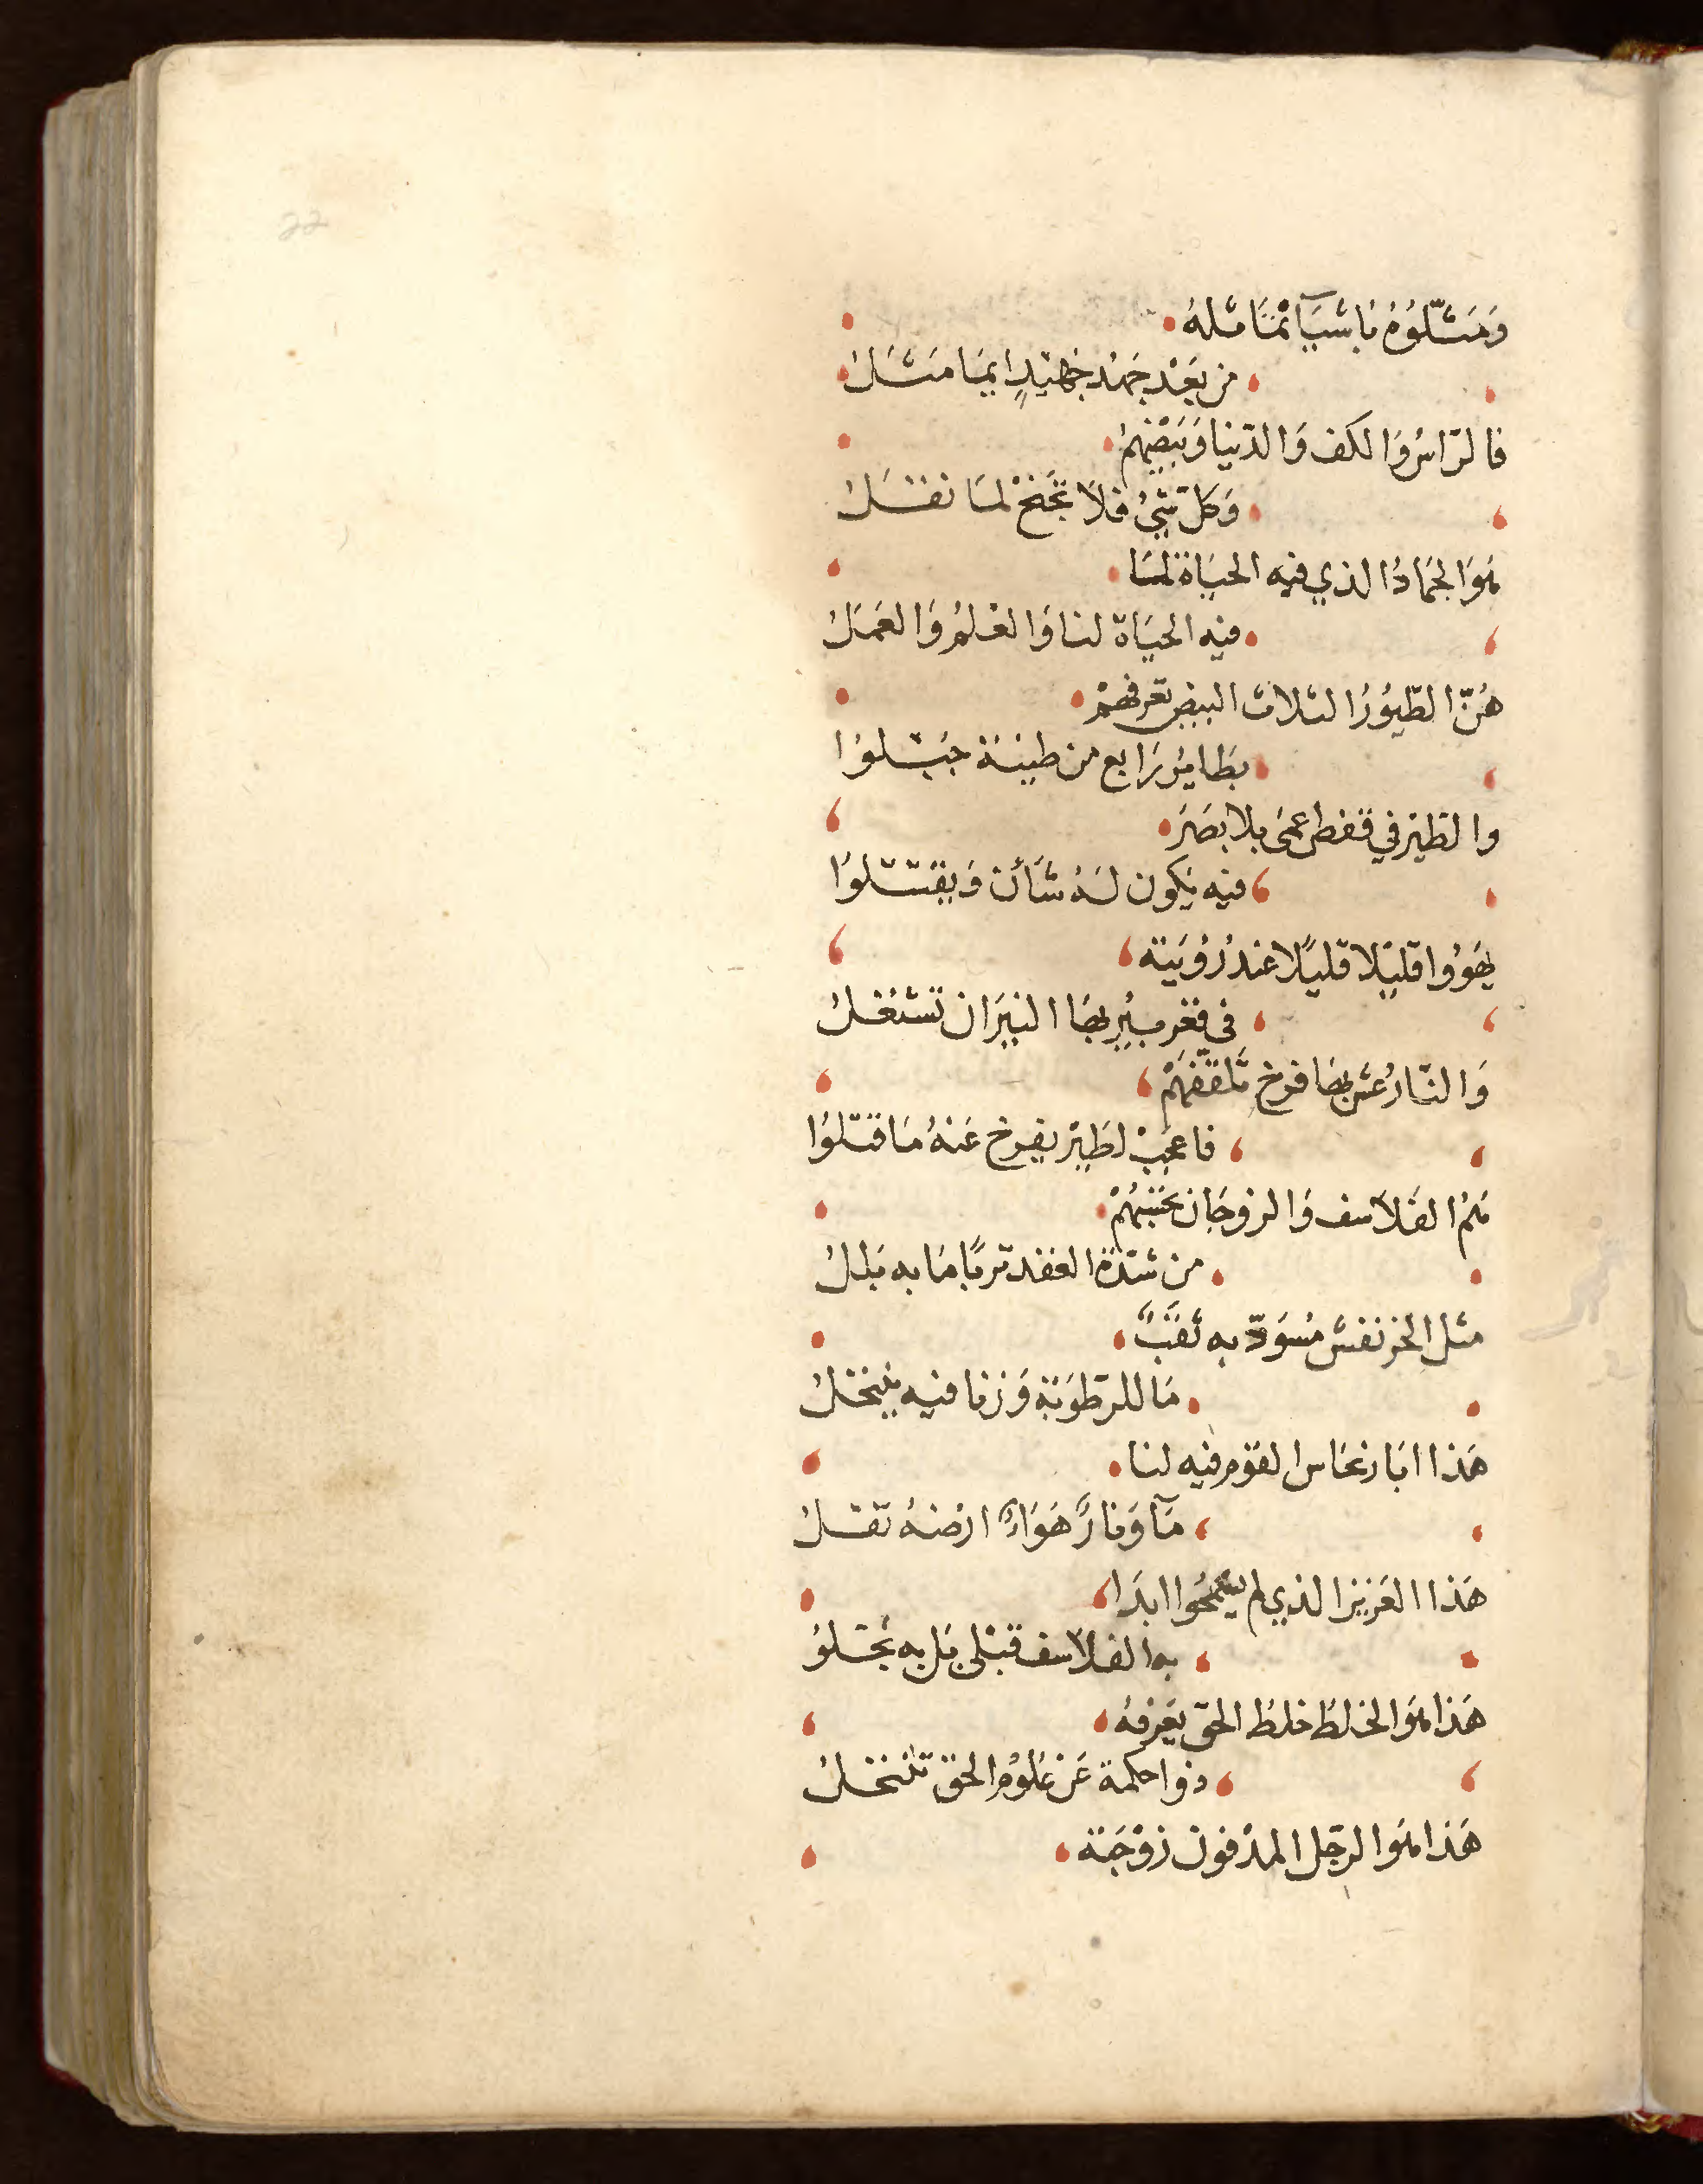 22
وَمَثّلُوُهُ بَاشيَآ تمَاثلهُ
من بَعْد جَهْد جَهيْدٍ ايمَا مَثَلُ
فالرّاسُ وَالكف وَالدّنيا وَبَيْضهمْ
وَكل شئُ فلَا تجَنحْ لمَا نقَلُ
هوَ الجمَادُ الذي فيه الحيَاة لمَا
فيه الحيَاة لنا وَالعْلمُ وَالعَمَلُ
هُنّ الطّيُوُرُ الثلاث البيض تعرفهمْ
بطَايرُ رَابع من طينَة جبُلوُا
والطيرْ في قفص عمَى بلا بصَرَ
فيه يَكون لهُ شأن وَيقتتلوُا
يهَوُوا قليْلا قليْلًا عندْ رُؤيَته
في قعْر بيُرٍ بهَا النيرَان تشتْعلُ
وَالنّارُ عش بهَا فرخ تَلقّفهَمْ
فاعجَبْ لطَيرْ بفرخ عَنهُ مَا قتلوُا
هُمُ الفلَاسف وَالزوجَان نحَبَهُمْ
من شدّة العقد تربًا مَا به بَللُ
مثل الخز نفسْ مُسوَدّ به نُقبٌ
مَا للرّطوَبَة وَزنا فيه ينْخلُ
هَذا ابَار نحَاس القوْم فيه لنا
مَآ وَنارٌ هَوَاءٌ ارْضهُ تقلُ
هَذا العَزيز الذي لم يسْمَحُوا ابدَا
به الفلَاسف قبْلى بَل به بخَلوُ
هَذا هوَ الخلط خلطُ الحقّ يَعْرفهُ
ذوا حكمة عَن عُلوُم الحق تنْخلُ
هَذا هوَا الرّجل المدْفون زوْجَته